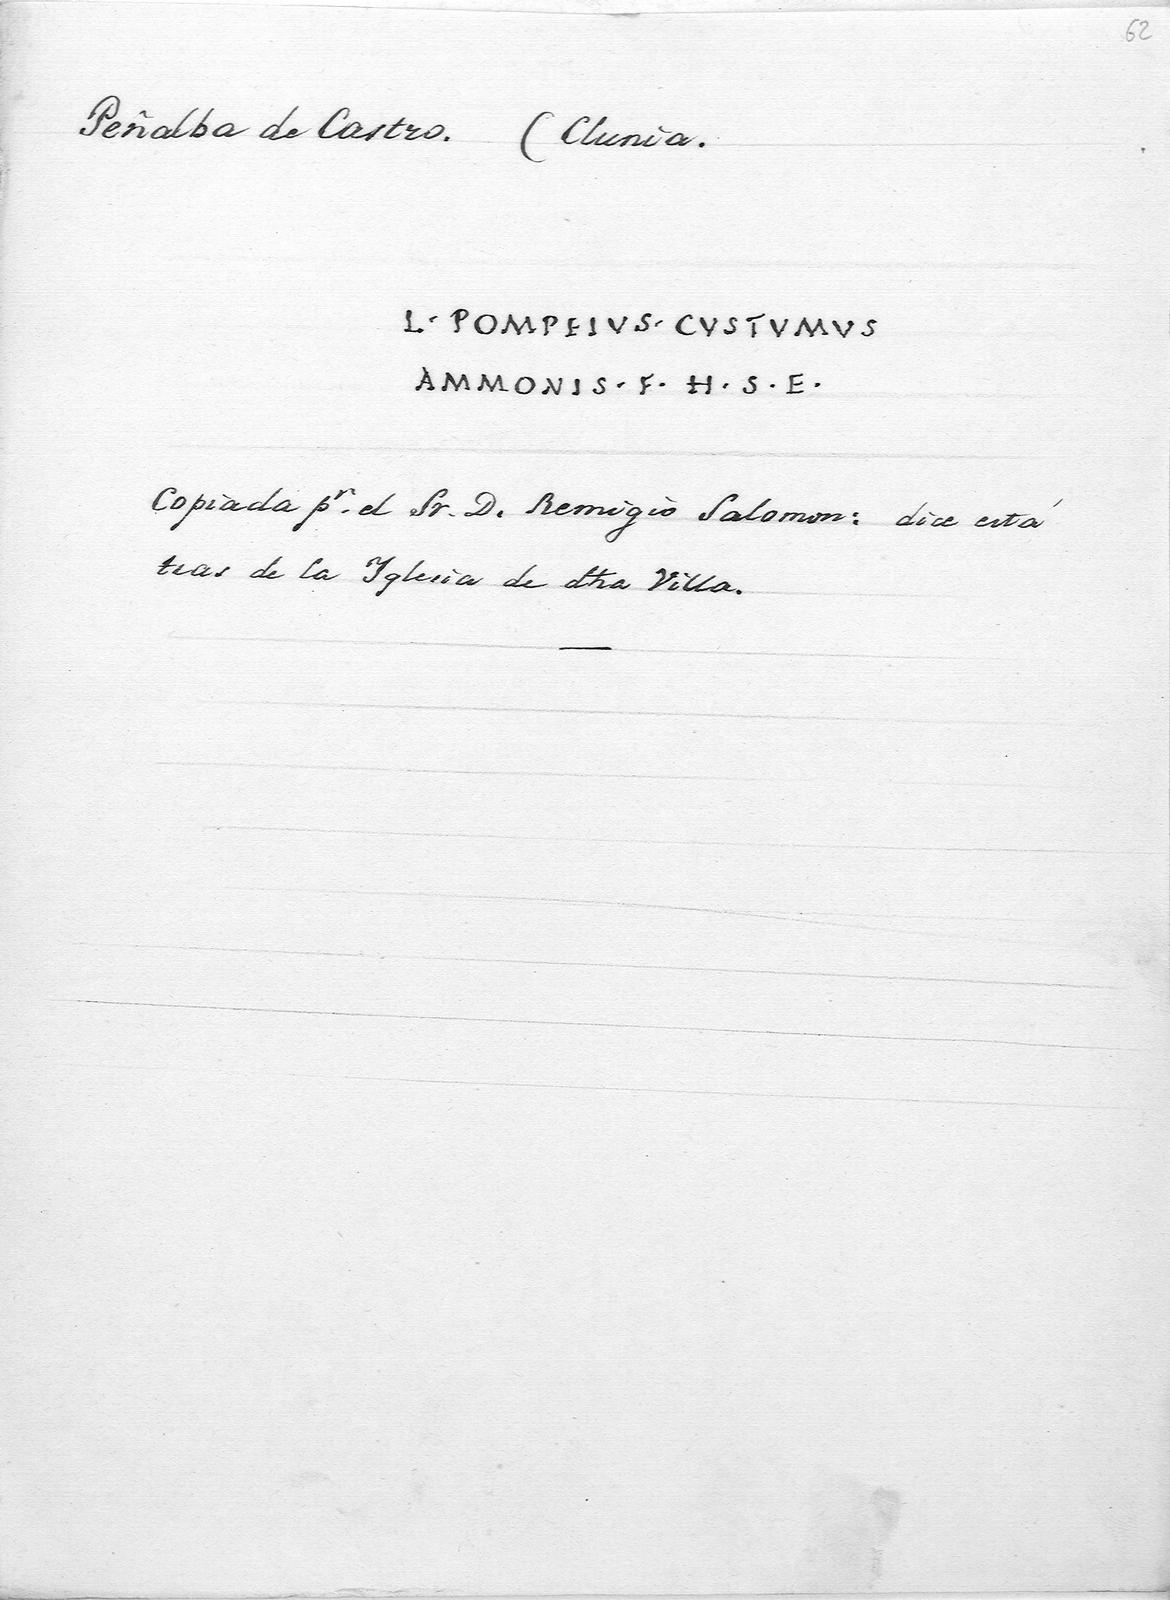 62
Peñalba de Castro. (Clunia.
L· POMPEIVS· CVSTVMVS
AMMONIS· F· H· S· E·
Copiada pr. el Sr. D. Remigio Salomon: dice está
tras de la Yglesia de dha Villa.